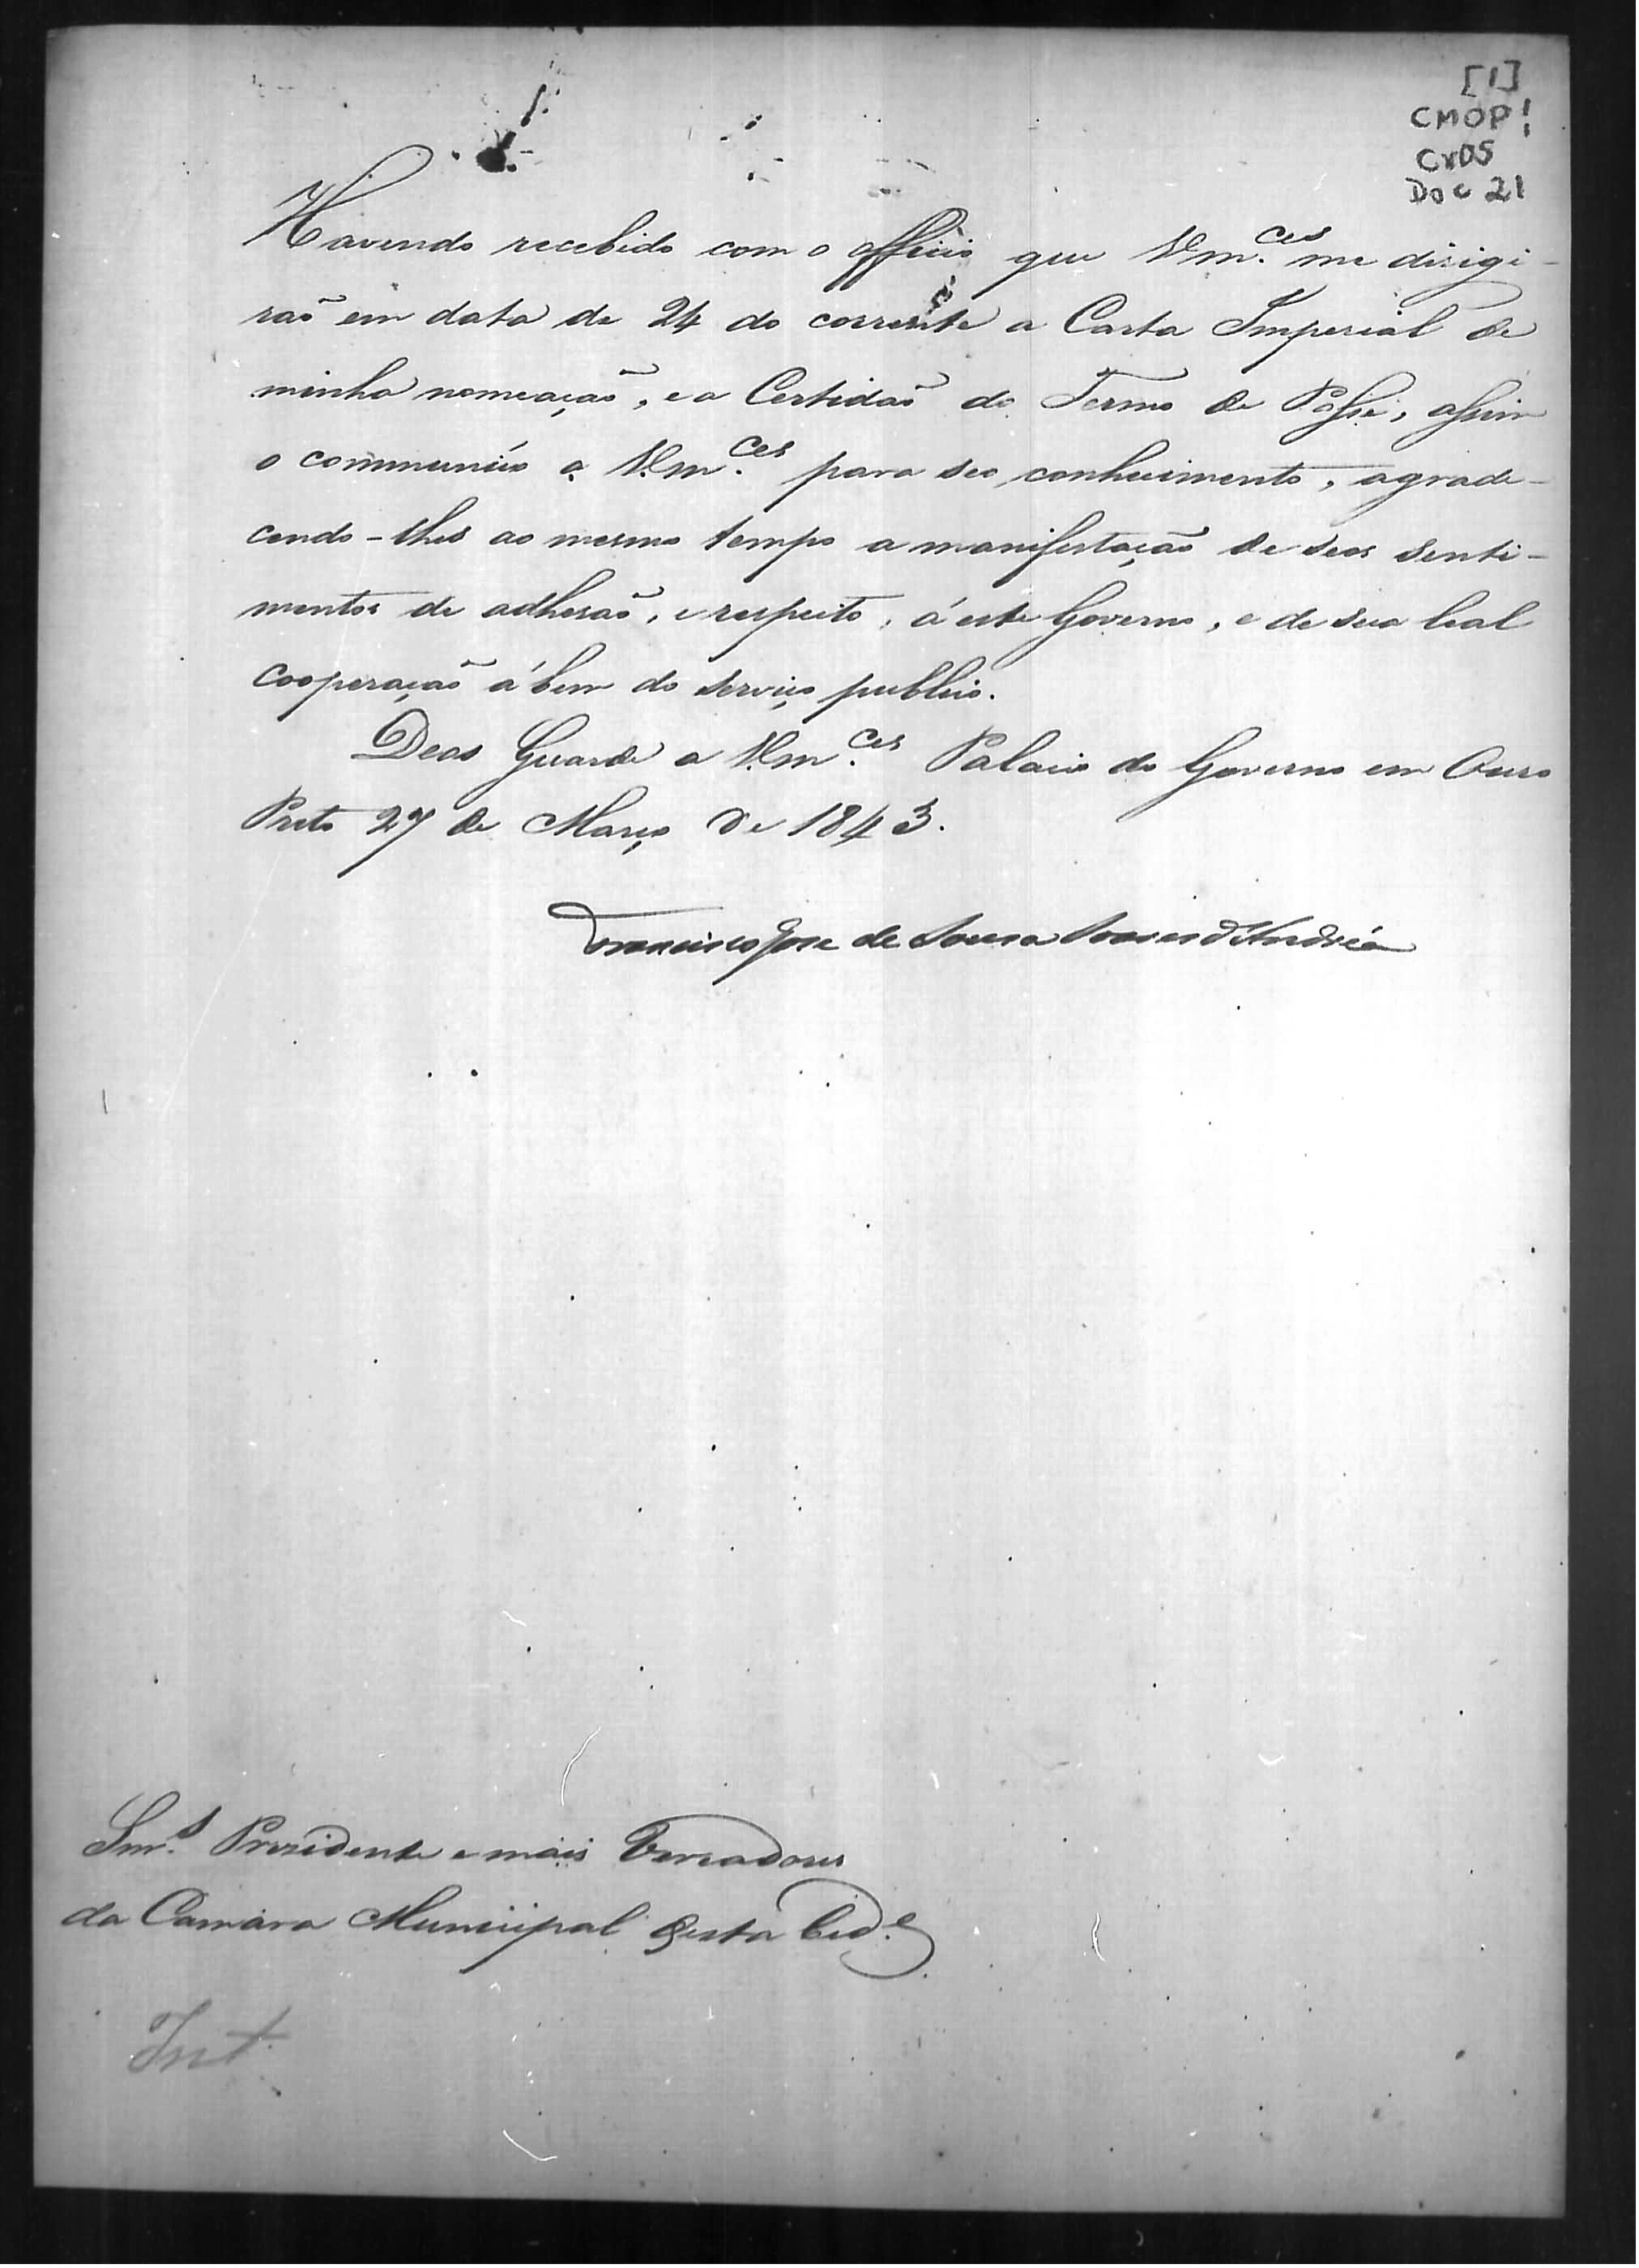 [1]
CMOP!
Cx05
Doc 21
Havendo recebido com o officio que Vm.ces me dirigi-
raõ em data de 24 do corrente a Carta Imperial de
minha nomeaçaõ, e a Certidaõ do Termo de Posse, assim
o communico a Vm.ces para seo conhecimento, agrade-
cendo-lhes ao mesmo tempo a manifestaçaõ de seos senti-
mentos de adhesaõ, e respeito, á este Governo, e de sua leal
cooperaçaõ á bem do serviço publico.
Deos Guarde a Vm.ces Palacio do Governo em Ouro
Preto 27 de Março de 1843.
Francisco Jose de Sousa Soares d'Andréa
Snr.s Prezidente e mais Vereadores
da Camara Municipal desta Cid.e
Int.